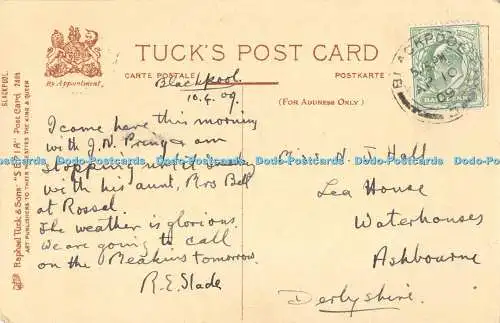 TUCK'S POST CARD
CARTE POSTALE
POSTKARTE
By Appointment.
(FOR ADDRESS ONLY.)
BLACKPOOL.
Raphael Tuck & Sons' "SEPIA" Post Card 2405
ART PUBLISHERS TO THEIR MAJESTIES THE KING & QUEEN
BLACKPOOL
PM
10
09
Blackpool
10.4.09.
I came here this morning
with J.N. Prenger am
stopping until
with his aunt, Mrs Bell
at Rossal.
The weather is glorious
We are going to call
on the Meakins tomorrow.
R.E. Slade
Miss N. J. Hall
Lea House
Waterhouses
Ashbourne
Derbyshire.
Ddo-Postcards Ddo-Postcards Ddo-Postcards Ddo-Postcards